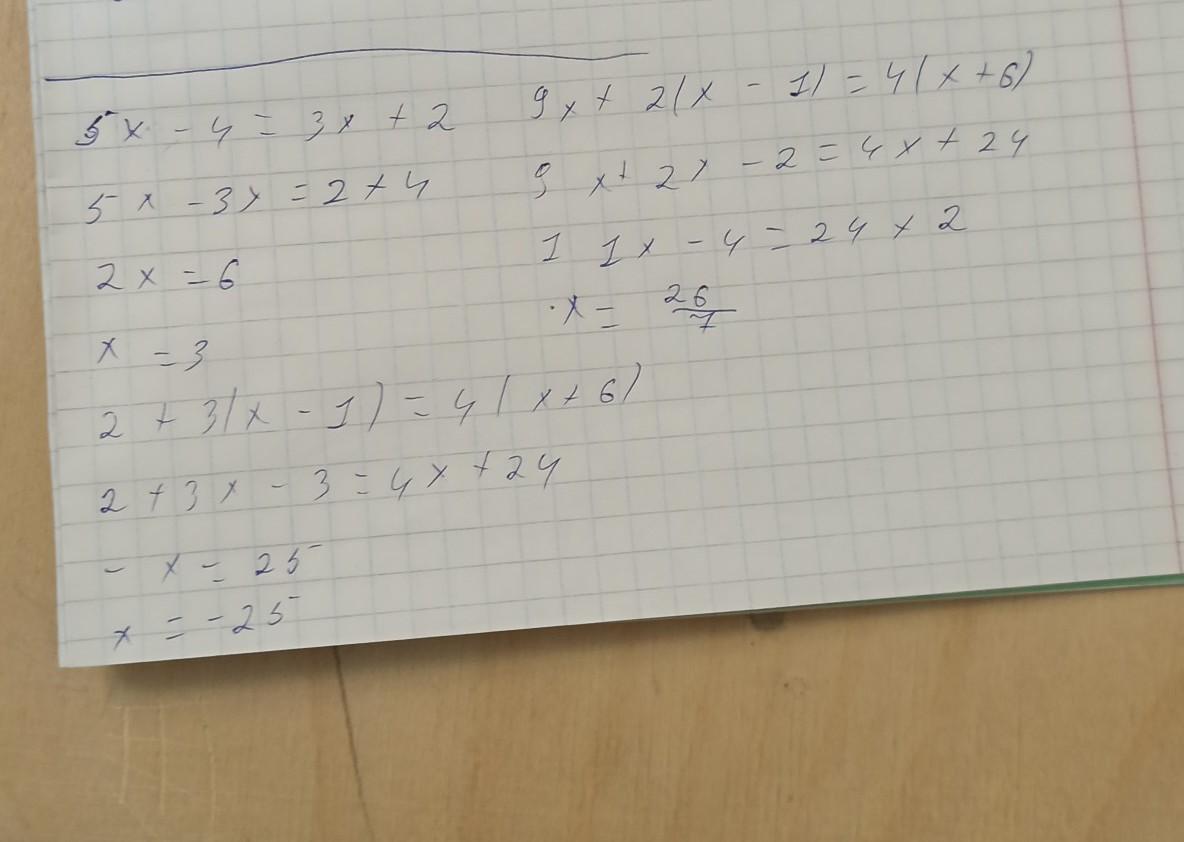 5x - 4 = 3x + 2
5x - 3x = 2 + 4
2x = 6
x = 3
2 + 3(x - 1) = 4(x + 6)
2 + 3x - 3 = 4x + 24
- x = 25
x = -25
9x + 2(x - 1) = 4(x + 6)
9x + 2x - 2 = 4x + 24
11x - 4 = 24 + 2
x = 26/7